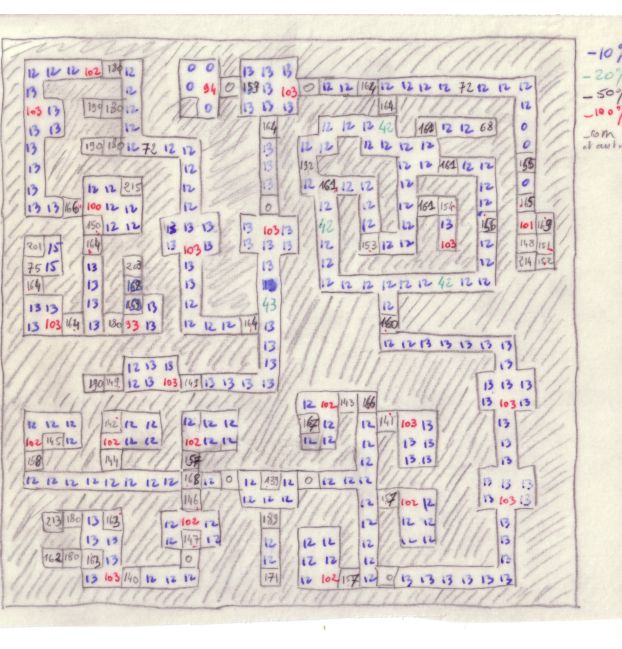 12 12 12 102 180 12 0 0 13 13 13 -10%
13 12 0 94 0 159 13 103 0 12 12 164 12 12 12 12 72 12 12 12 -20%
103 13 190 180 12 0 13 13 13 164 12 -50%
13 13 12 164 12 12 12 42 161 12 12 68 0 -100%
13 190 180 12 72 12 12 13 12 12 12 12 12 12 0
13 12 13 192 12 161 12 12
13 12 12 215 12 13 12 161 12 12 12 12
13 13 166 100 12 12 12 0 12 12 161 154 12 115
150 12 12 13 13 13 103 13 42 12 13 101 169
201 15 164 13 103 13 13 13 153 12 12 103 12 148 154
75 15 13 203 12 13 12 12 214 152
164 13 168 12 12 12 12 12 12 12 42 12 12
13 13 13 159 13 12 43 12
13 103 164 13 180 33 13 12 12 12 164 13 160
13 12 12 13 13 13 13 13
12 13 13 13 13
190 149 12 13 103 149 13 13 13 13 13 13 13
12 102 143 166 13 103 13
12 12 12 142 12 12 12 12 167 12 12 141 103 13 13
102 145 12 102 12 12 102 12 12 12 12 12 13 13 13
158 144 157 12 13 13 13
12 12 12 12 12 12 12 12 168 12 0 12 139 12 0 12 12 12 13 13 13
146 12 12 12 12 157 102 12 13 103 13
213 180 13 163 12 102 12 189 12 12 12 13
13 13 12 147 12 12 12 12 12 12 12 13
162 180 163 13 0 12 12 12 12 13
13 103 140 12 12 12 171 12 102 157 12 0 13 13 13 13 13 13